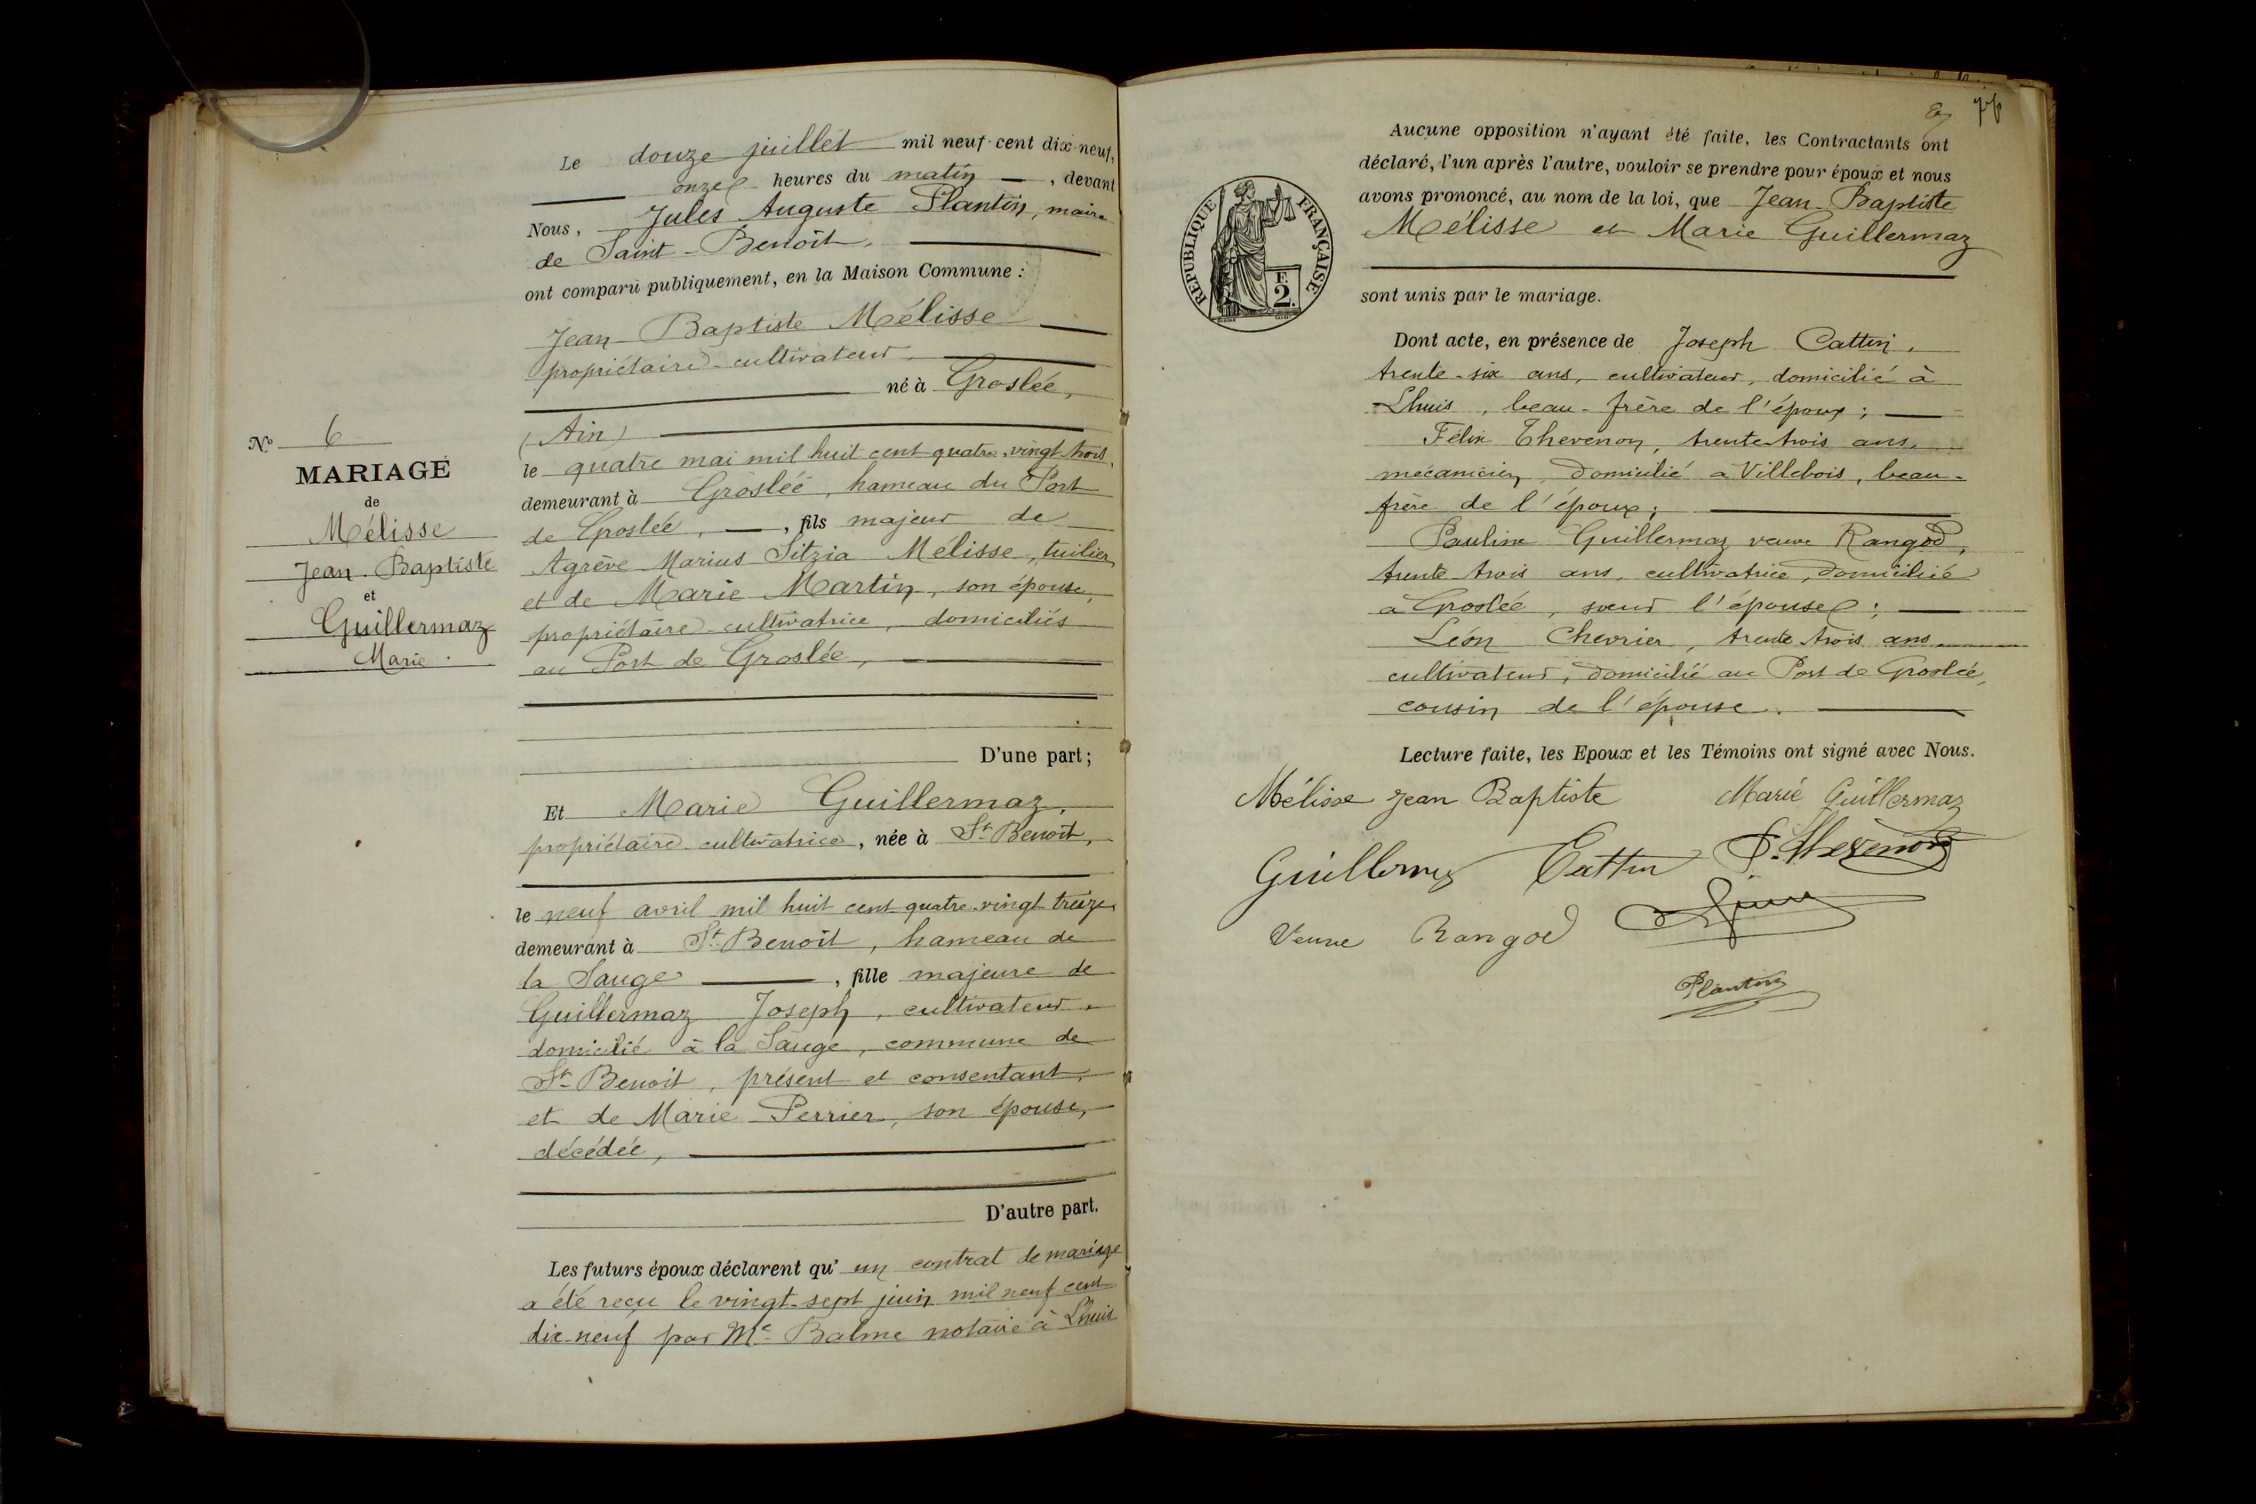 Le douze juillet mil neuf cent dix-neuf,
onze heures du matin, devant
Nous, Jules Auguste Plantin, maire
de Saint-Benoît,
ont comparu publiquement, en la Maison Commune :
Jean-Baptiste Mélisse
propriétaire-cultivateur,
né à Groslée,
(Ain)
le quatre mai mil huit cent quatre-vingt trois,
demeurant à Groslée, hameau du Port
de Groslée, fils majeur de
Agrève Marius Sitzia Mélisse, tuilier,
et de Marie Martin, son épouse,
propriétaire-cultivatrice, domiciliés
au Port de Groslée,
D'une part ;
Et Marie Guillermaz,
propriétaire-cultivatrice, née à St Benoît,
le neuf avril mil huit cent quatre-vingt treize
demeurant à St Benoît, hameau de
la Sauge, fille majeure de
Guillermaz Joseph, cultivateur,
domicilié à la Sauge, commune de
St Benoit, présent et consentant,
et de Marie Perrier, son épouse,
décédée,
D'autre part.
Les futurs époux déclarent qu'un contrat de mariage
a été reçu le vingt-sept juin mil neuf cent
dix-neuf par Me Balme notaire à Lhuis
No 6
MARIAGE
de
Mélisse
Jean-Baptiste
et
Guillermaz
Marie.
Aucune opposition n'ayant été faite, les Contractants ont
déclaré, l'un après l'autre, vouloir se prendre pour époux et nous
avons prononcé, au nom de la loi, que Jean-Baptiste
Mélisse et Marie Guillermaz
sont unis par le mariage.
RÉPUBLIQUE FRANÇAISE
F.
2.
Dont acte, en présence de Joseph Cattin,
trente-six ans, cultivateur, domicilié à
Lhuis, beau-frère de l'époux ;
Félix Thevenon, trente-trois ans,
mécanicien, domicilié à Villebois, beau-
frère de l'époux ;
Pauline Guillermaz veuve Rangod,
trente-trois ans, cultivatrice, domiciliée
à Groslée, soeur l'épouse ;
Léon Chevrier, trente trois ans
cultivateur, domicilié au Port de Groslée,
cousin de l'épouse.
Lecture faite, les Epoux et les Témoins ont signé avec Nous.
Mélisse Jean Baptiste Marie Guillermaz
Guillermaz Cattin F. Thevenon
Veuve Rangod
Plantin